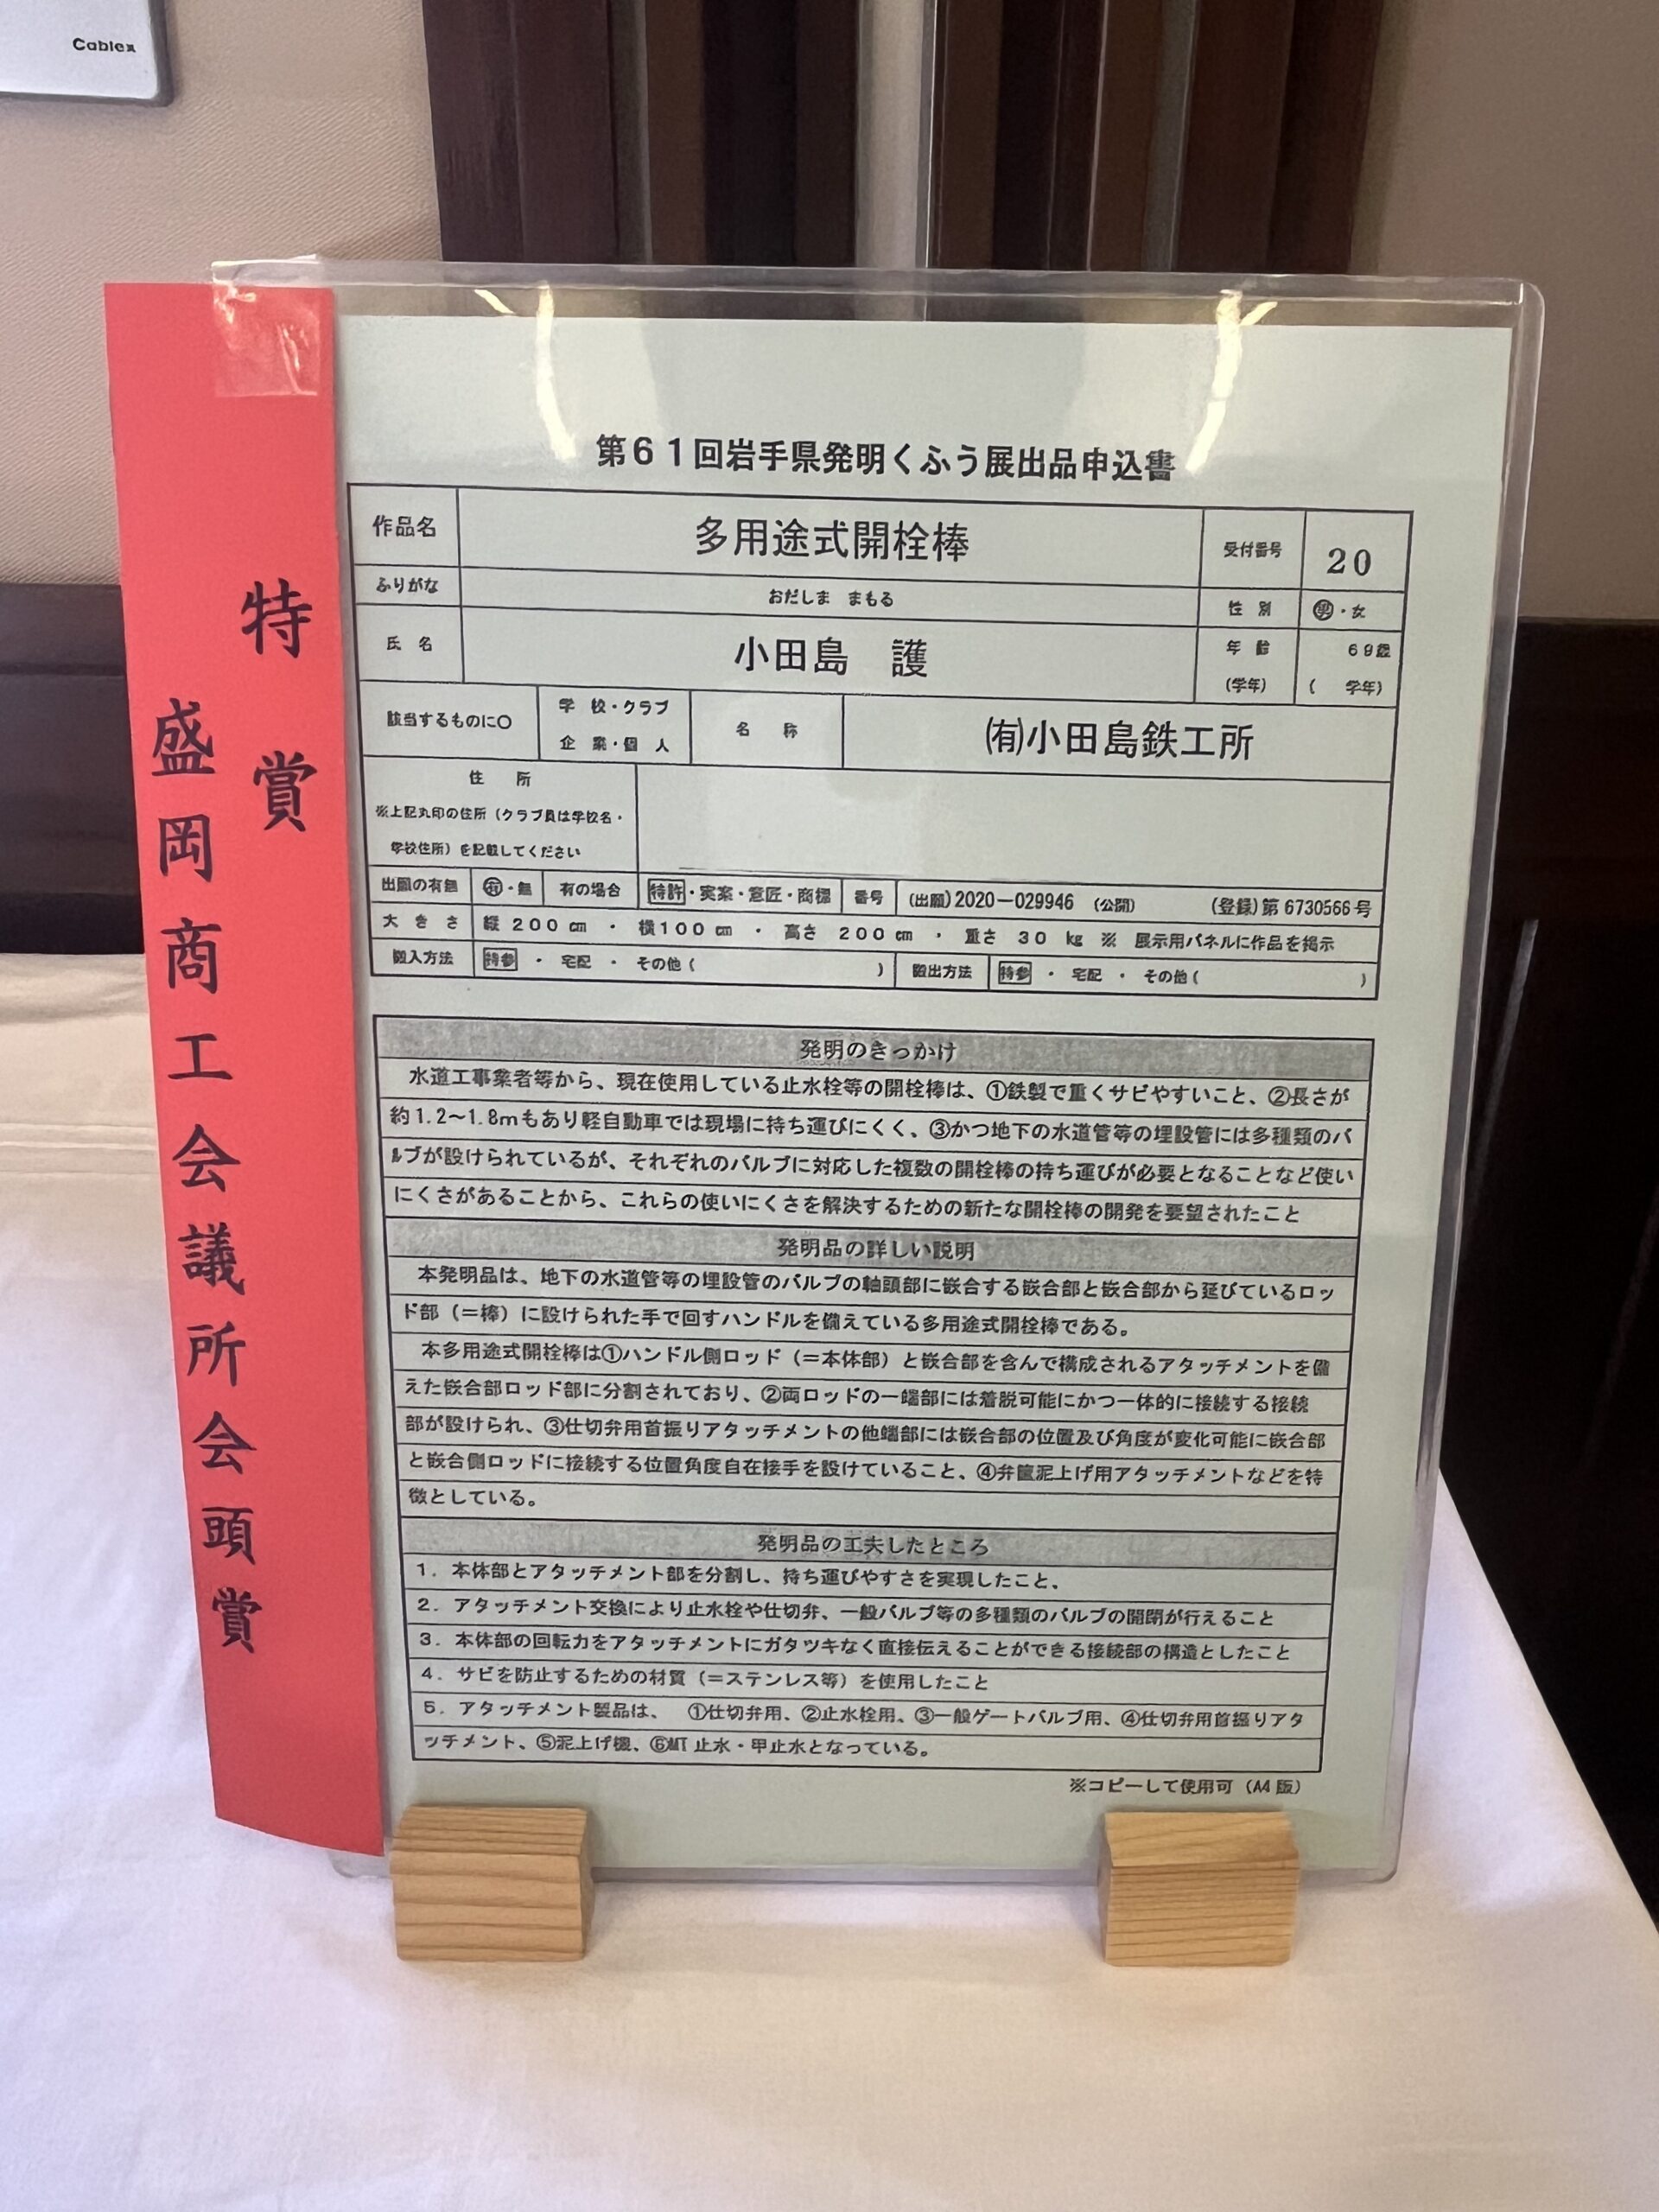 Cablex
特賞
盛岡商工会議所会頭賞
第61回岩手県発明くふう展出品申込書
作品名 多用途式開栓棒 受付番号 20
ふりがな おだしま まもる 性別 男・女
氏名 小田島 護 年齢 69歳
(学年) ( 学年)
該当するものに〇 学校・クラブ
企業・個人
名称 ㈲小田島鉄工所
住所
※上記丸印の住所(クラブ員は学校名・
学校住所)を記載してください
出願の有無 有・無 有の場合 特許・実案・意匠・商標 番号 (出願)2020-029946 (公開) (登録)第6730566号
大きさ 縦200㎝ ・ 横100㎝ ・ 高さ 200㎝ ・ 重さ 30 kg ※ 展示用パネルに作品を掲示
搬入方法 持参 ・ 宅配 ・ その他( ) 搬出方法 持参 ・ 宅配 ・ その他( )
発明のきっかけ
水道工事業者等から、現在使用している止水栓等の開栓棒は、①鉄製で重くサビやすいこと、②長さが
約1.2～1.8mもあり軽自動車では現場に持ち運びにくく、③かつ地下の水道管等の埋設管には多種類のバ
ルブが設けられているが、それぞれのバルブに対応した複数の開栓棒の持ち運びが必要となることなど使い
にくさがあることから、これらの使いにくさを解決するための新たな開栓棒の開発を要望されたこと
発明品の詳しい説明
本発明品は、地下の水道管等の埋設管のバルブの軸頭部に嵌合する嵌合部と嵌合部から延びているロッ
ド部(=棒)に設けられた手で回すハンドルを備えている多用途式開栓棒である。
本多用途式開栓棒は①ハンドル側ロッド(=本体部)と嵌合部を含んで構成されるアタッチメントを備
えた嵌合部ロッド部に分割されており、②両ロッドの一端部には着脱可能にかつ一体的に接続する接続
部が設けられ、③仕切弁用首振りアタッチメントの他端部には嵌合部の位置及び角度が変化可能に嵌合部
と嵌合側ロッドに接続する位置角度自在接手を設けていること、④弁筐泥上げ用アタッチメントなどを特
徴としている。
発明品の工夫したところ
1．本体部とアタッチメント部を分割し、持ち運びやすさを実現したこと、
2．アタッチメント交換により止水栓や仕切弁、一般バルブ等の多種類のバルブの開閉が行えること
3．本体部の回転力をアタッチメントにガタツキなく直接伝えることができる接続部の構造としたこと
4．サビを防止するための材質(=ステンレス等)を使用したこと
5．アタッチメント製品は、 ①仕切弁用、②止水栓用、③一般ゲートバルブ用、④仕切弁用首振りアタ
ッチメント、⑤泥上げ機、⑥MT止水・甲止水となっている。
※コピーして使用可(A4版)